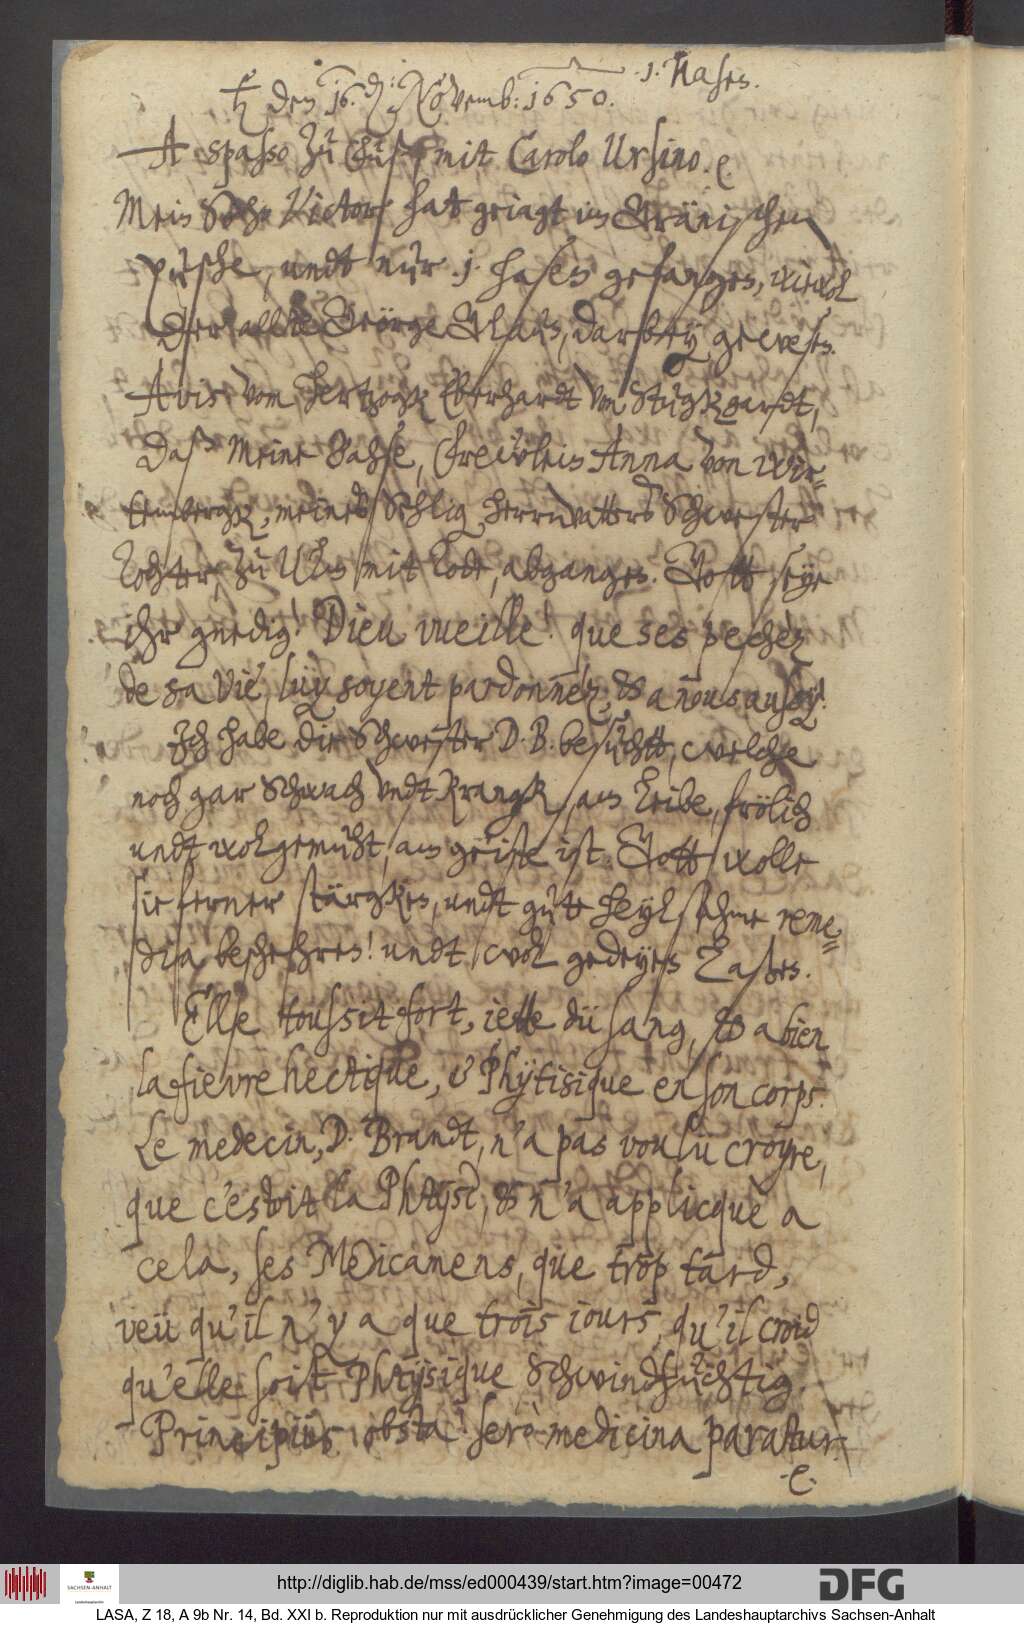 ♄ den 16. d: Novemb: 1650. .1. Hasen.
A spasso zu Fuß mit Carolo Ursino. e.
Mein Sohn Victor hat geiagt im Gränischen
pusche, undt nur .1. hasen gefangen, wiewol
der allte George Claus, darbey gewesen.
Avis vom Hertzogk Eberhardt von Stugkgardt,
daß Meine Bahse, Freẅlein Anna von Wir¬
temvergk, meines Sehlig, herrnvatters Schwester
Tochter, zu Ulm mit Tode, abgangen. Gott seye
ihr gnedig! Dieu vueille! que ses pechèz
de sa vie, luy soyent pardonnèz, & a nous aussy!
Ich habe die Schwester D. B. besuchtt, welche
noch gar schwach undt krangk, am Leibe, frölich
undt wolgemuht, am geiste ist. Gott wolle
sie ferner stärgken, undt gute heylsahme reme¬
dia beschehren! undt wol gedeyen laßen.
Elle toussit fort, jette du sang, & a bien
la fievre hectique, & Phytisique en son corps.
Le medecin, D. Brandt, n'a pas voulu croyre,
que c'estoit la Phtysè, & n'a applicquè a
cela, ses Medicamens, que trop tard,
veu qu'il n'y a que trois jours, qu'il croid
qu'elle soit Phtysique Schwindsuchtig.
Principiis obsta! serò medicina paratur.
.e.
http://diglib.hab.de/mss/ed000439/start.htm?image=00472
SACHSEN-ANHALT
Landeshauptarchiv
DFG
LASA, Z 18, A 9b Nr. 14, Bd. XXI b. Reproduktion nur mit ausdrücklicher Genehmigung des Landeshauptarchivs Sachsen-Anhalt